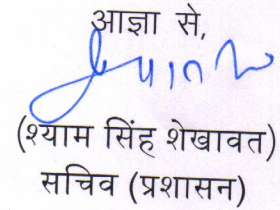 आज्ञा से,
(श्याम सिंह शेखावत)
सचिव (प्रशासन)